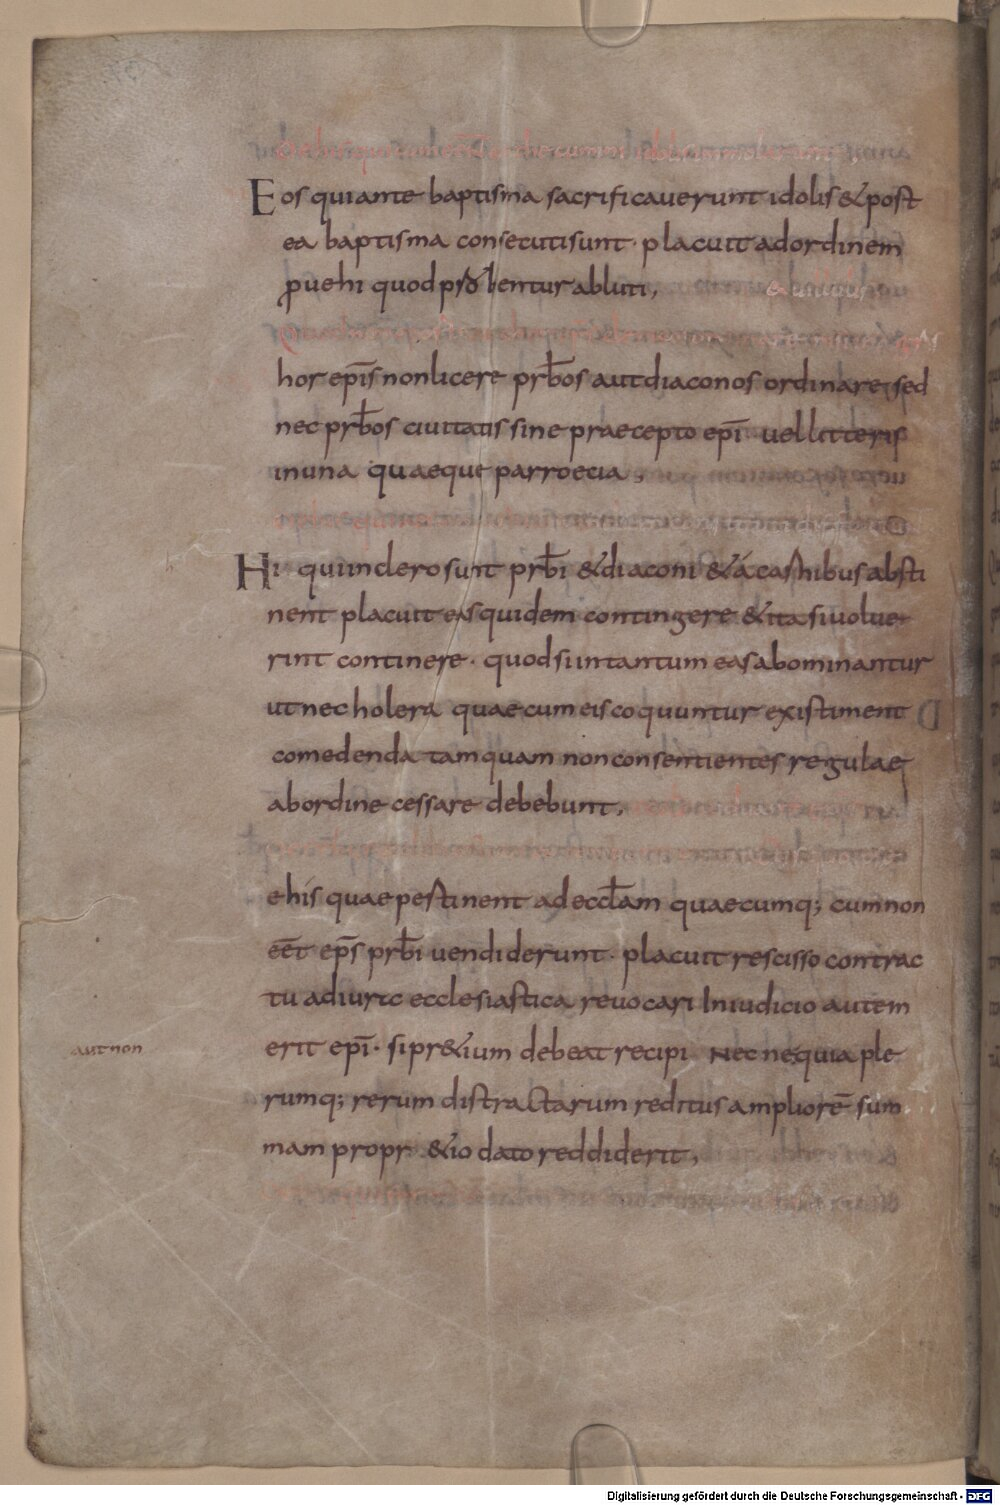 Eos qui ante baptisma sacrificaverunt idolis & post
ea baptisma consecuti sunt · placuit ad ordinem
ꝓuehi quod lentur abluti,
hor ep̄is non licere prb̄os aut diaconos ordinare sed
nec prb̄os ciuitatis sine praecepto ep̄i · uel litteris
in una quaeque parroecia ;
Hi qui in clero sunt prb̄i & diaconi & a carnibus absti
nent placuit eas quidem contingere & ita si uolue
rint continere · quod si in tantum eas abominantur
ut nec holera quae cum eis coquuntur existiment
comedenda tamquam non consentientes regulae
ab ordine cessare debebunt,
e his quae pertinent ad eccl̄am quaecumq; cum non
eēt ep̄s prb̄i vendiderunt · placuit rescisso contrac
tu ad iuric ecclesiastica reuocari In iudicio autem
erit ep̄i · si pr&ium debeat recipi Nec ne quia ple
aut non
rumq; rerum distractarum reditus ampliorē sum
mam propr &io dato reddiderit,
Digitalisierung gefördert durch die Deutsche Forschungsgemeinschaft - DFG